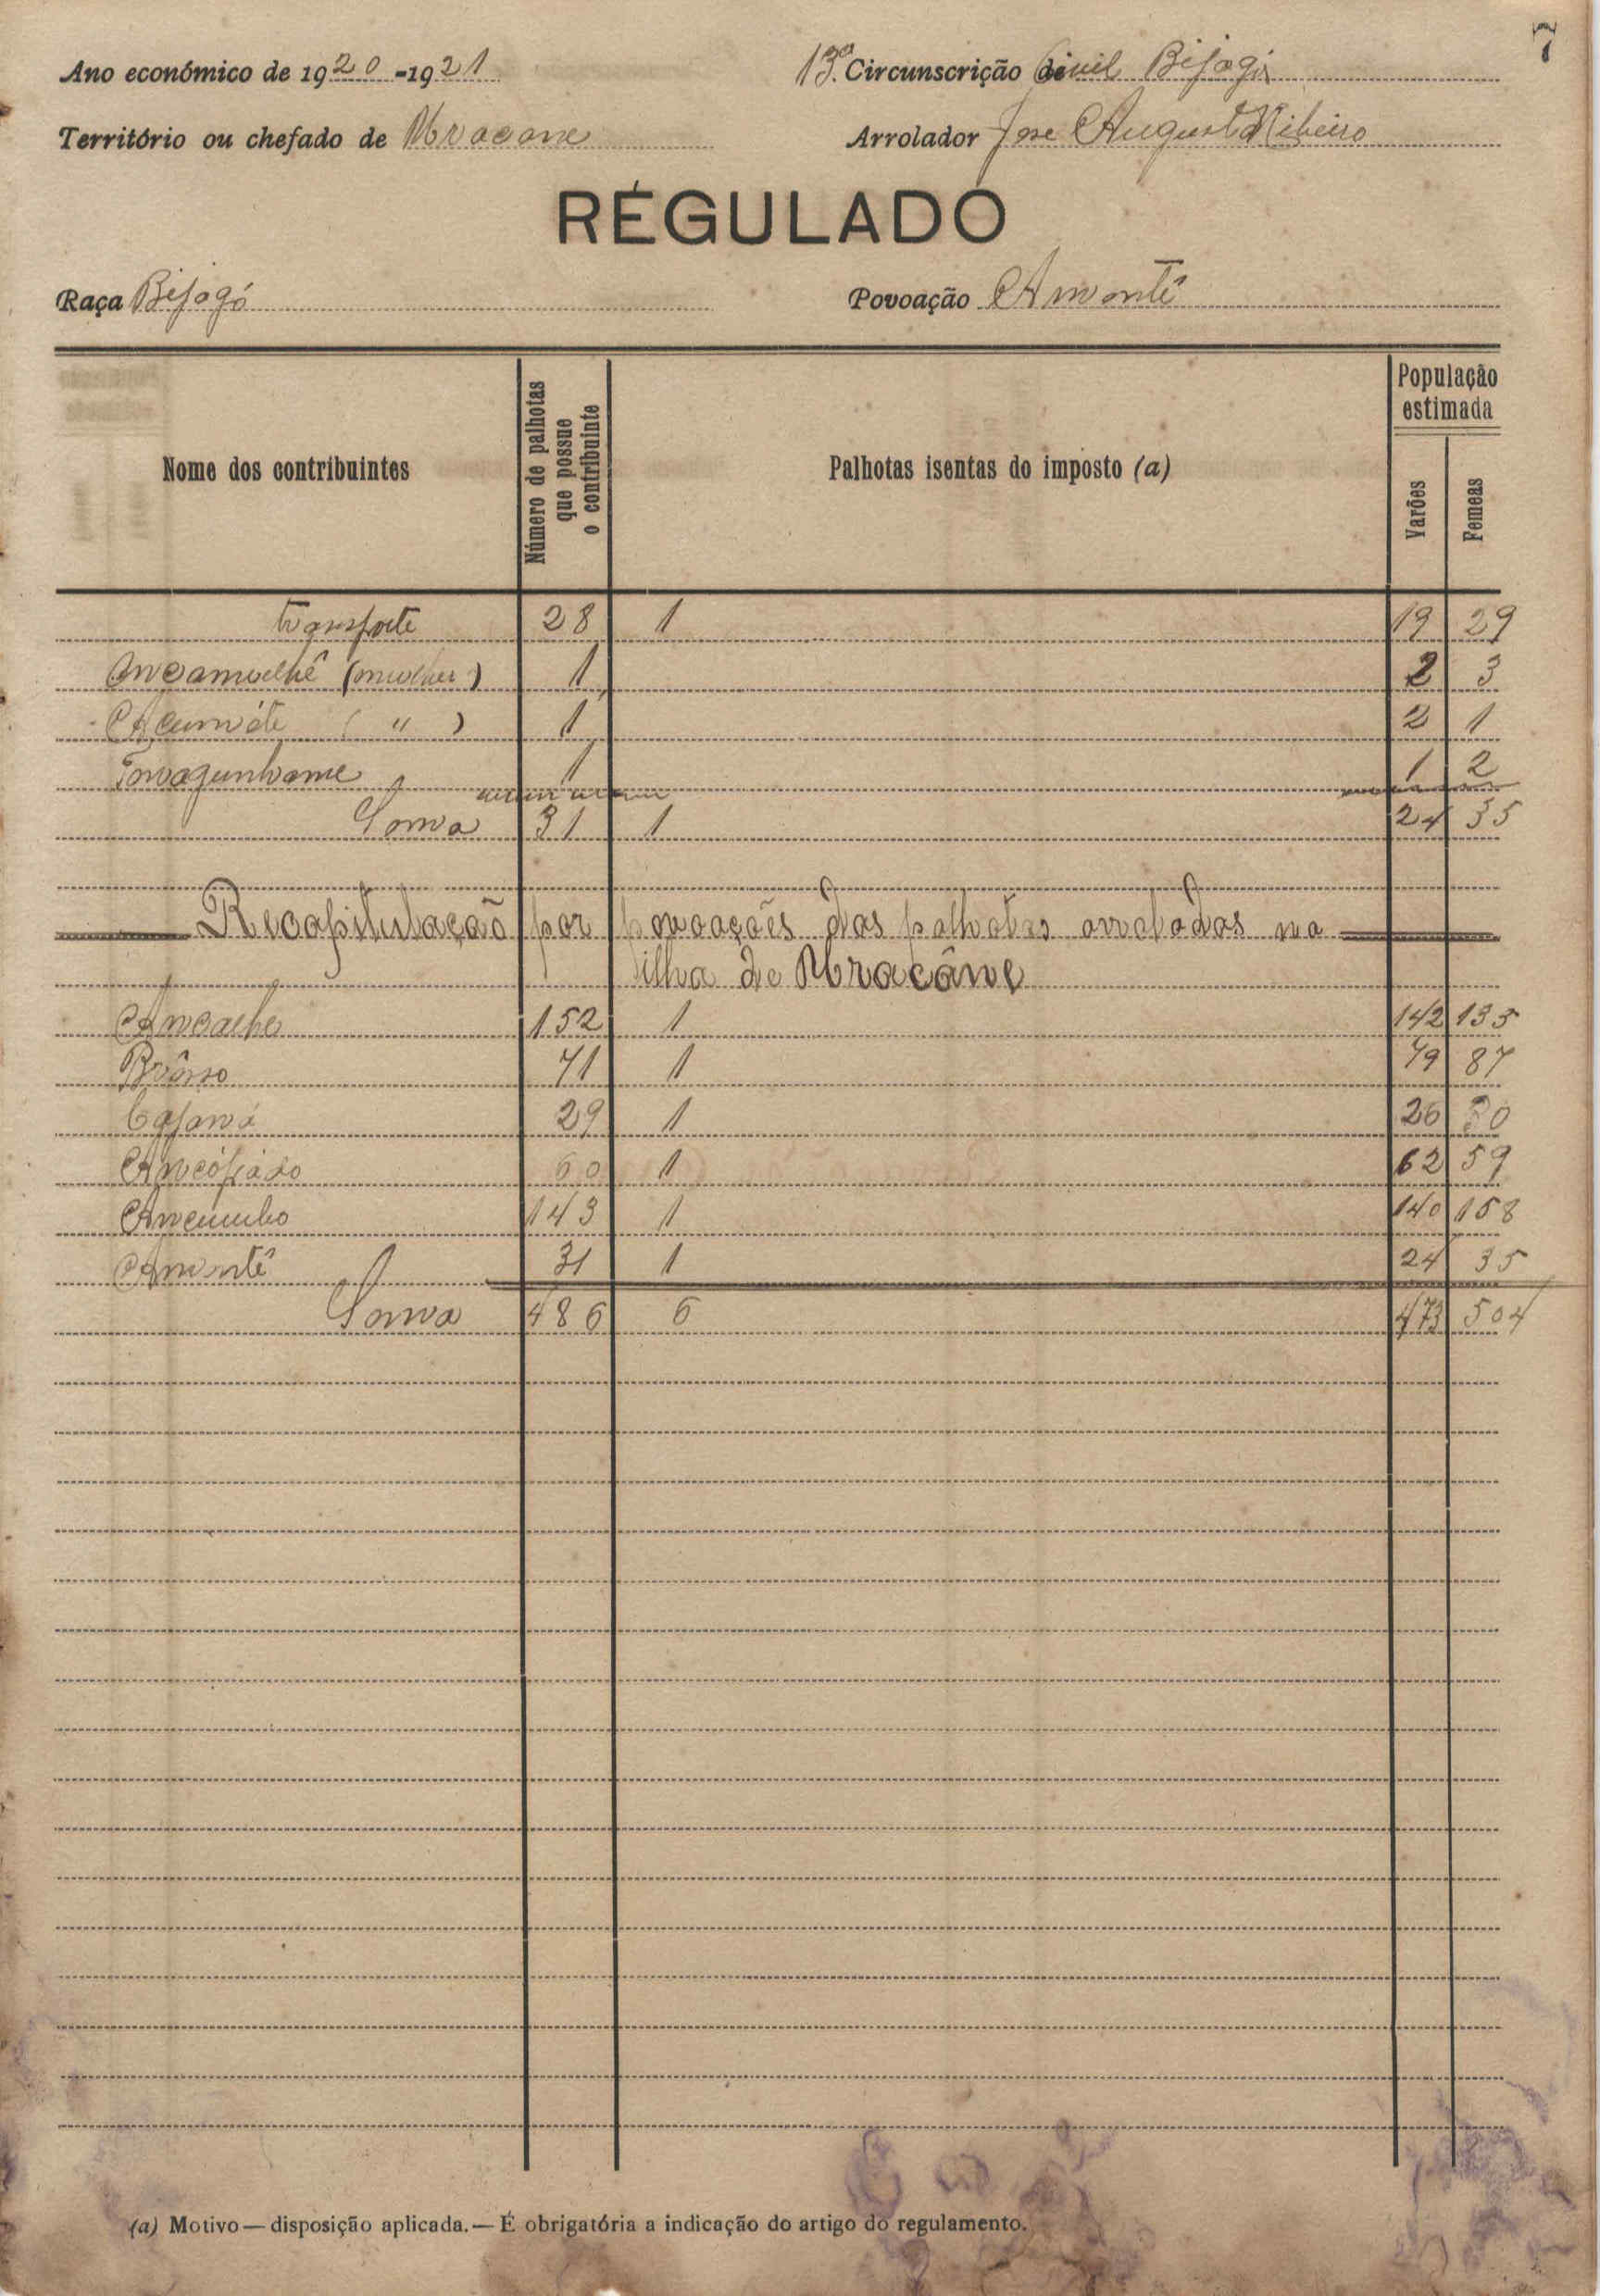 7
Ano económico de 1920-1921
13ª Circunscrição Civil Bijagós
Território ou chefado de Uracane
Arrolador Jose Augusto Ribeiro
REGULADO
Raça Bijagó
Povoação Amontê
Nome dos contribuintes
Número de palhotas que possue o contribuinte
Palhotas isentas do imposto (a)
População estimada
Varões
Femeas
transporte 28 1 19 29
(mulher) 1 2 3
( " ) 1 2 1
1 1 2
Soma 31 1 24 35
Recapitulação por povoações das palhotas arroladas na
ilha de Uracâne
Ancalhe 152 1 142 135
71 1 79 87
29 1 26 30
Ancópádo 60 1 62 59
Ancumbo 143 1 140 158
Amontê 31 1 24 35
Soma 486 6 473 504
(a) Motivo — disposição aplicada. — É obrigatória a indicação do artigo do regulamento.